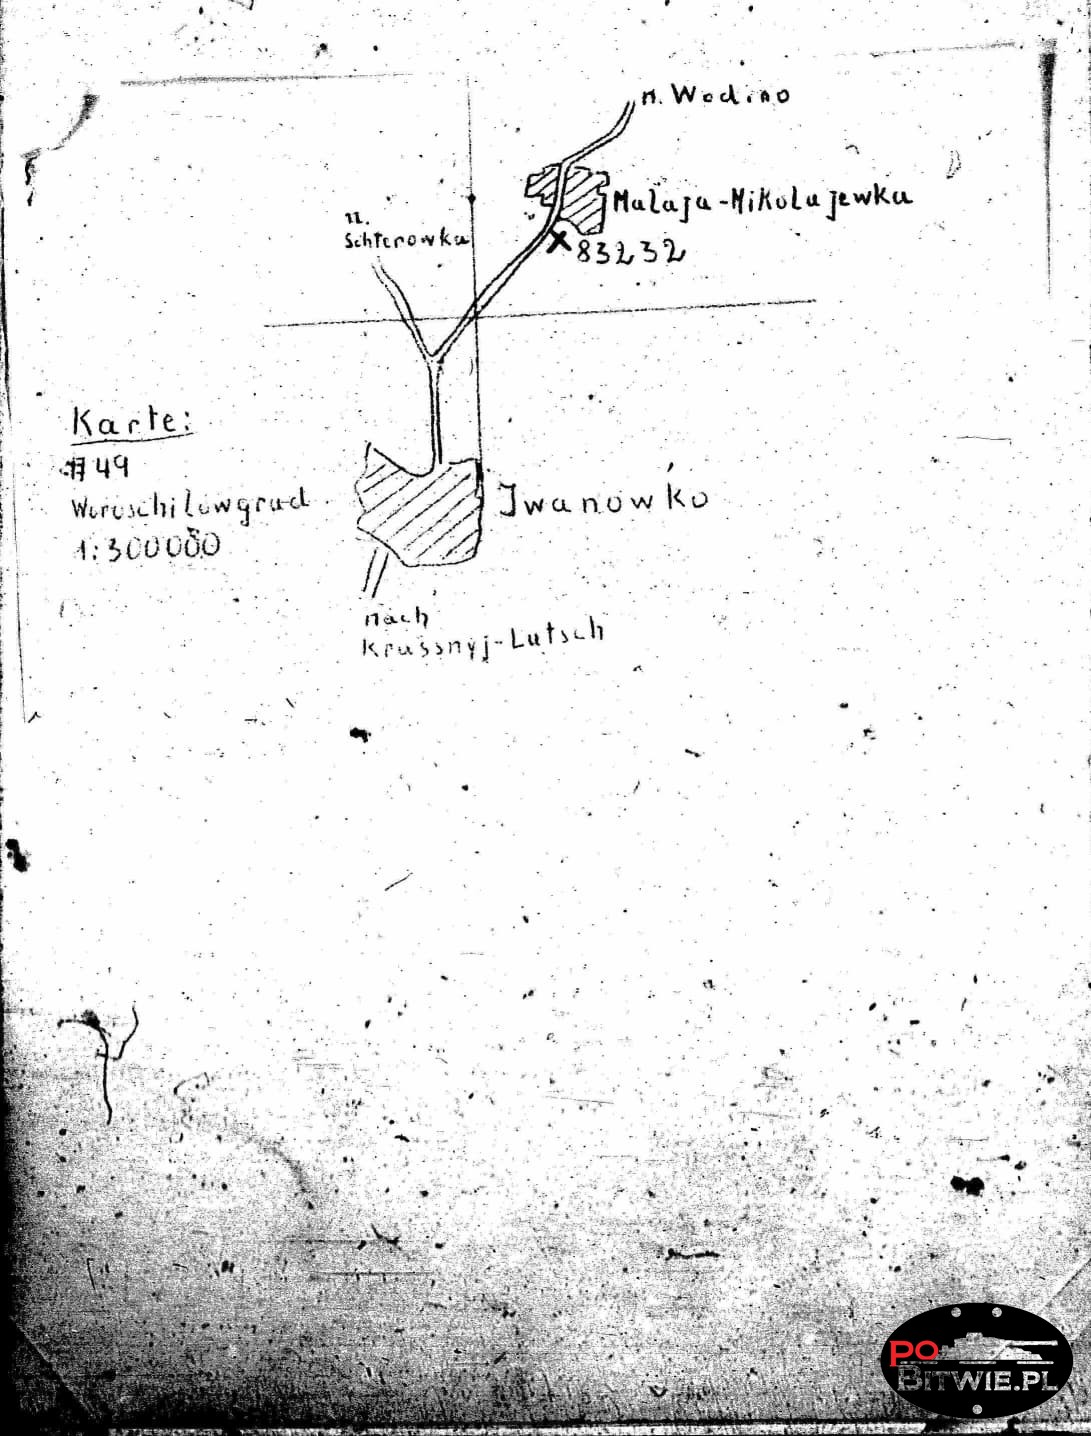 n. Wodino
Malaja-Nikolajewka
n.
Schterowka
83232
Karte:
49
Woroschilowgrad
1:300000
Jwanowko
nach
Krassnyj-Lutsch
PO
BITWIE.PL